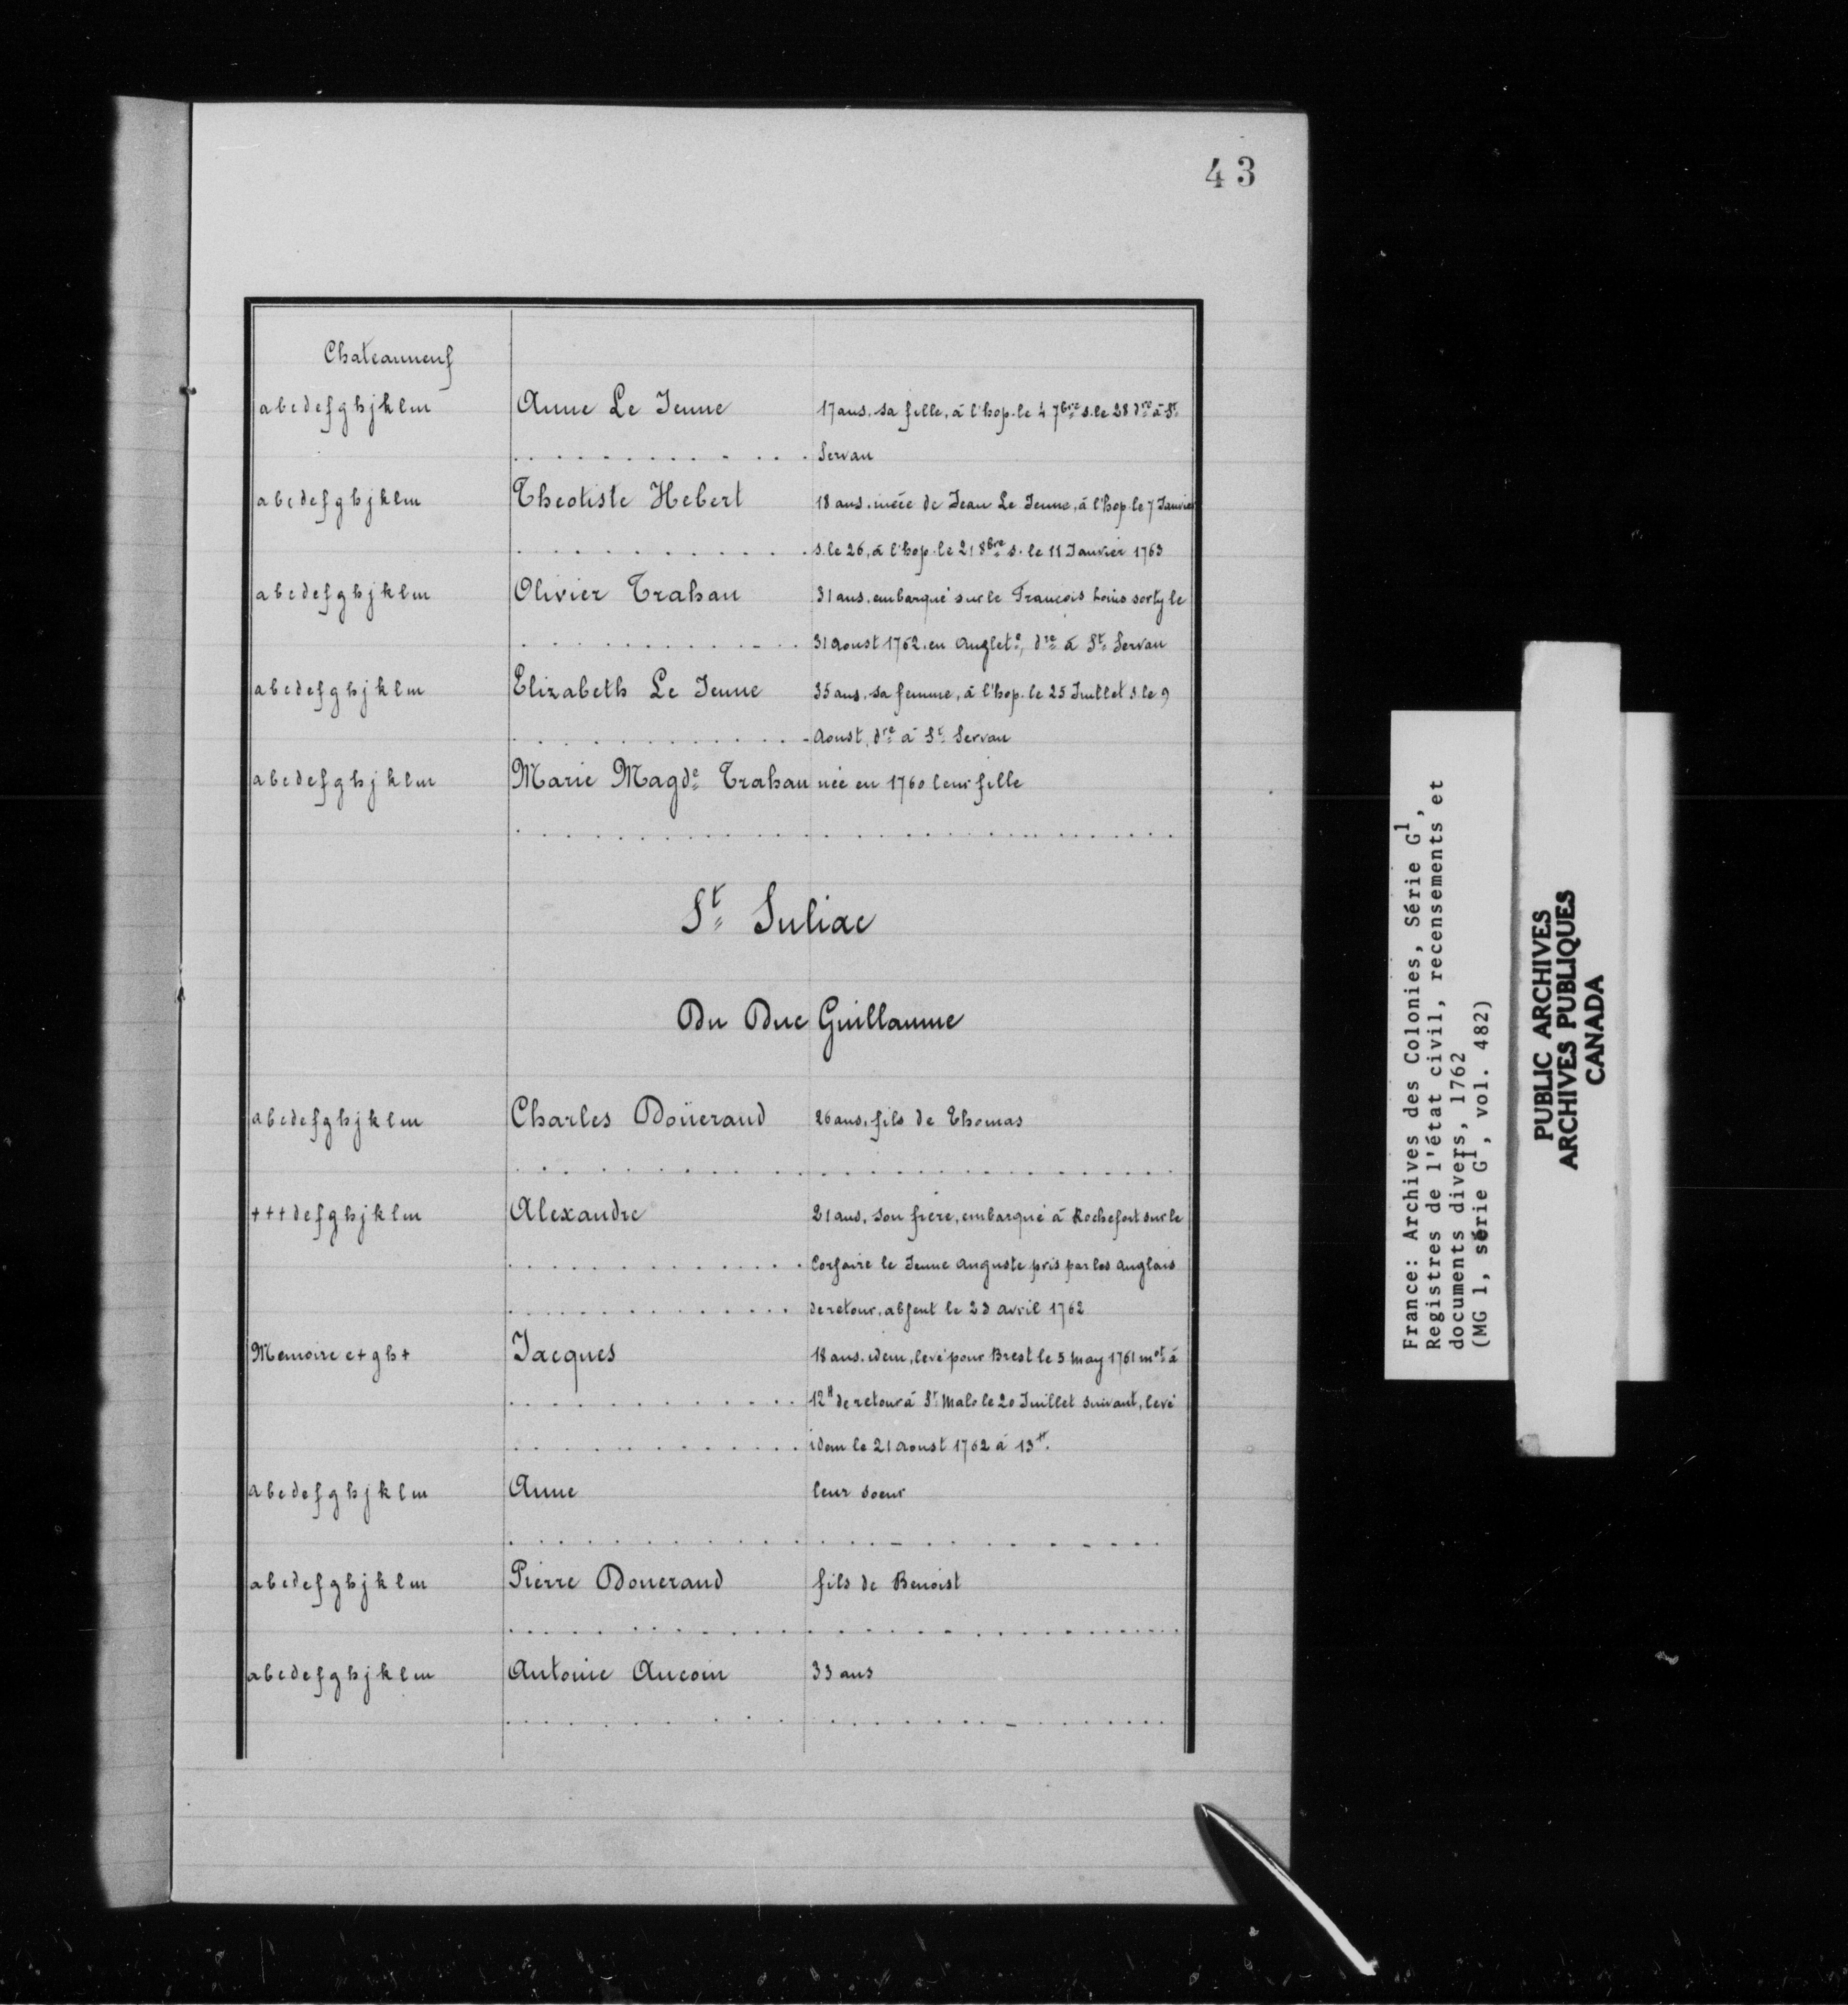 43
Chateauneuf
abcdefghjklm Anne Le Jeune 17 ans, sa fille, à l'hop. le 4 7bre s. le 28 dre à St
Servan
abcdefghjklm Theotiste Hebert 18 ans. niéce de Jean Le Jeune, à l'hop. le 7 Janvier
s. le 26, à l'hop. le 21 8bre s. le 11 Janvier 1763
abcdefghjklm Olivier Trahan 31 ans, embarqué sur le François Louis sorty le
31 Aoust 1762, en Anglete, dre à St Servan
abcdefghjklm Elizabeth Le Jeune 35 ans, sa femme, à l'hop. le 25 Juillet s. le 9
Aoust, dre à St Servan
abcdefghjklm Marie Magde Trahan née en 1760 leur fille
St Suliac
Du Duc Guillaume
abcdefghjklm Charles Doüeraud 26 ans, fils de Thomas
+++defghjklm Alexandre 21 ans, son frere, embarqué à Rochefort sur le
Corsaire le Jeune Auguste pris par les Anglais
de retour, absent le 23 avril 1762
Memoire e+gh+ Jacques 18 ans. idem, levé pour Brest le 5 May 1761 mot à
12tt de retour à St Malo le 20 Juillet suivant, levé
idem le 21 Aoust 1762 à 13tt.
abcdefghjklm Anne leur soeur
abcdefghjklm Pierre Doueraud fils de Benoist
abcdefghjklm Antoine Aucoin 33 ans
France: Archives des Colonies, Série G1,
Registres de l'état civil, recensements et
documents divers, 1762
(MG 1, série G1, vol. 482)
PUBLIC ARCHIVES
ARCHIVES PUBLIQUES
CANADA